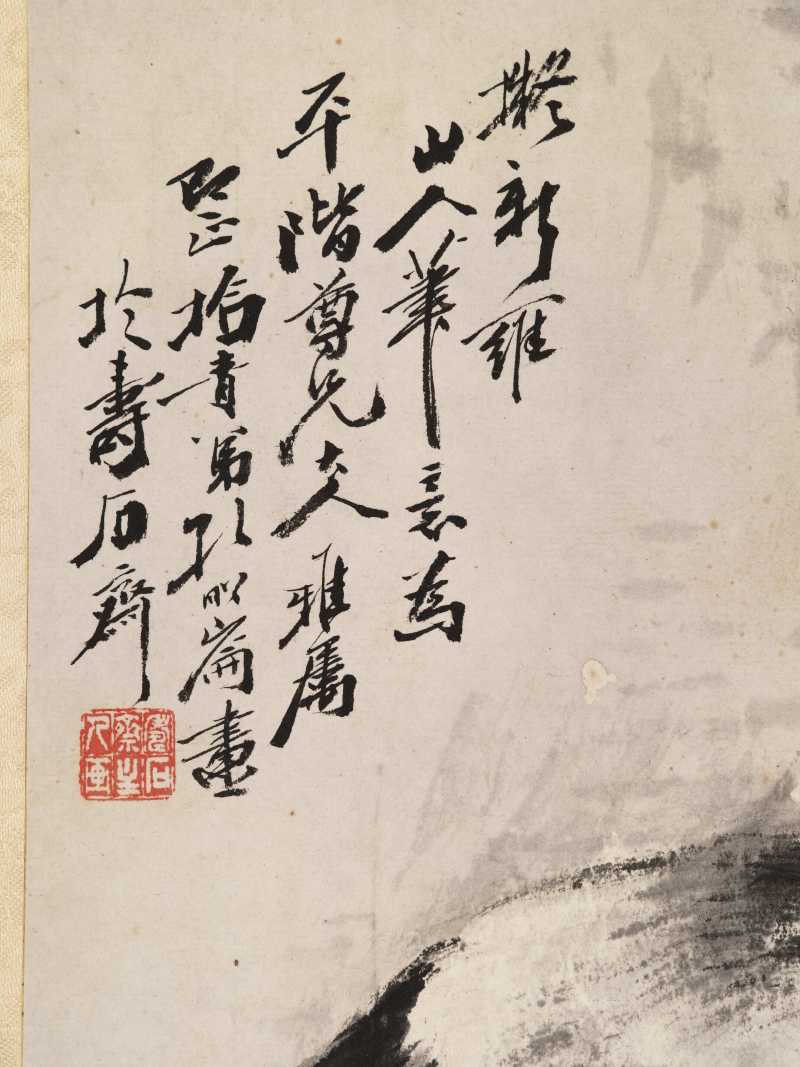 擬新羅
山人筆意為
平階尊兄大人雅屬
即正拾青弟孔小瑜畫
於壽石齋
壽石齋主人畫